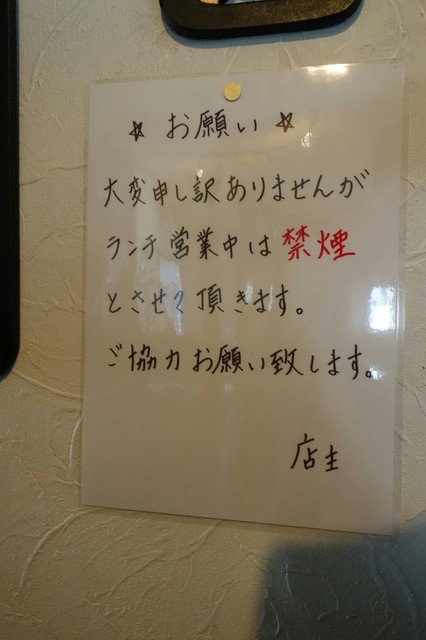 ☆ お願い ☆
大変申し訳ありませんが
ランチ営業中は禁煙
とさせて頂きます。
ご協力お願い致します。
店主